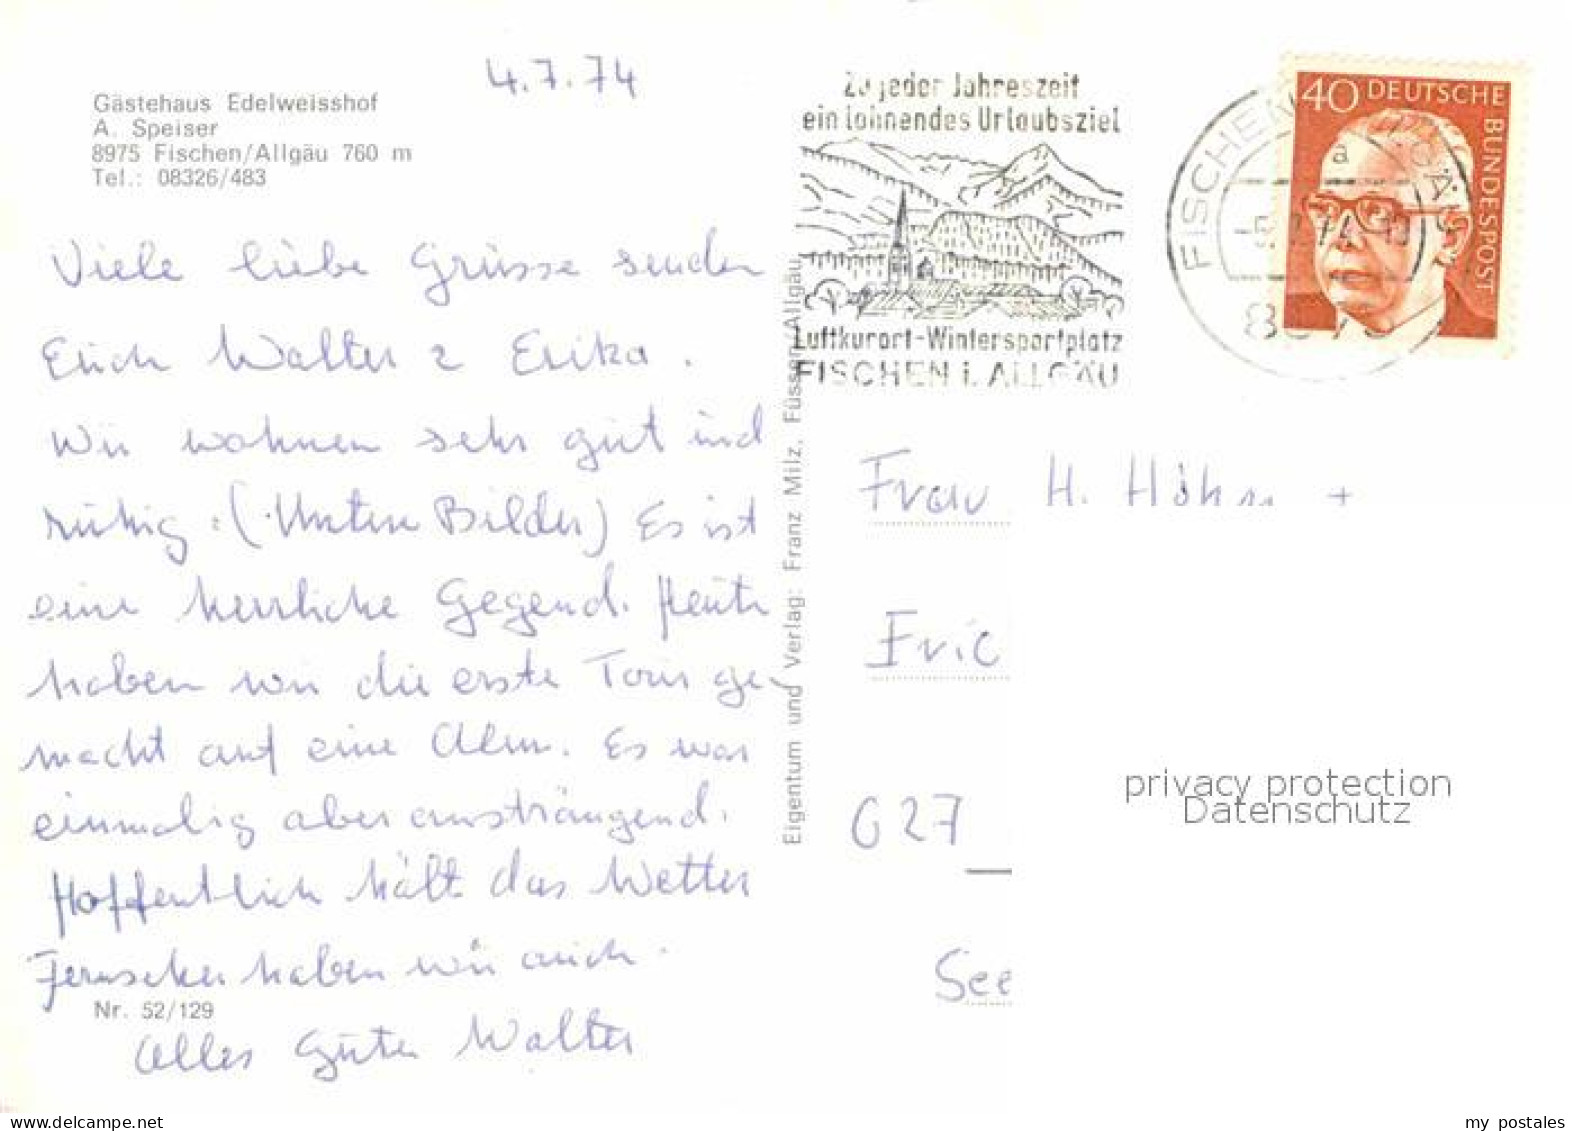 4.7.74
Gästehaus Edelweisshof
A. Speiser
8975 Fischen/Allgäu 760 m
Tel.: 08326/483
Viele liebe Grüsse senden
Euch Walter & Erika.
Wir wohnen sehr gut und
ruhig :(Unten Bilder) Es ist
eine herrliche Gegend. Heute
haben wir die erste Tour ge-
macht auf eine Alm. Es war
einmalig aber ansträngend.
Hoffentlich hält das Wetter
Fernseher haben wir auch.
Nr. 52/129
Alles Gute Walter
Eigentum und Verlag: Franz Milz, Füssen/Allgäu
Zu jeder Jahreszeit
ein lohnendes Urlaubsziel
Luftkurort-Wintersportplatz
FISCHEN i. ALLGÄU
FISCHEN
a
40 DEUTSCHE
BUNDESPOST
Frau H. Höhn +
Eric
627
See
privacy protection
Datenschutz
www.delcampe.net
my postales